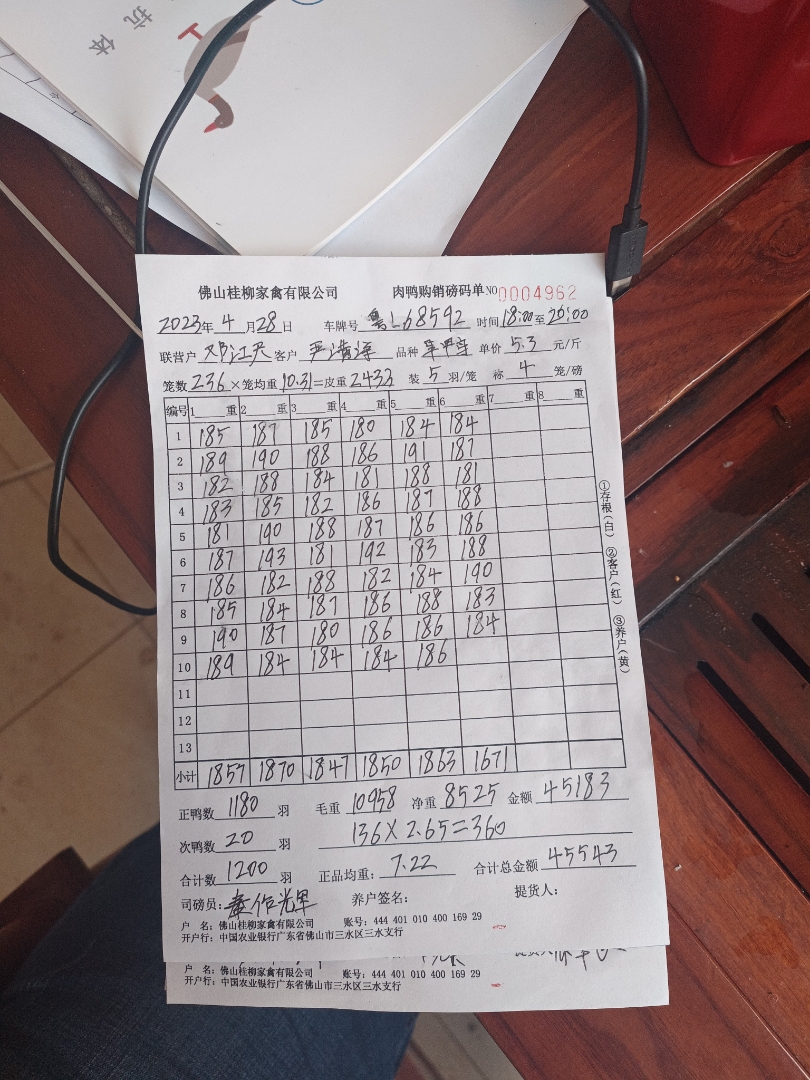 抗体
佛山桂柳家禽有限公司 肉鸭购销磅码单 NO 0004962
2023年 4月28日 车牌号 粤L68592 时间 18:00至20:00
联营户 邓江天 客户 品种 单价 5.3 元/斤
笼数 236 ×笼均重 10.31 =皮重 2433 装 5 羽/笼 称 4 笼/磅
编号 1 重 2 重 3 重 4 重 5 重 6 重 7 重 8 重
1 185 187 185 180 184 184
2 189 190 188 186 191 187
3 182 188 184 181 188 181
4 183 185 182 186 187 188
5 181 190 188 187 186 186
6 187 193 181 192 183 188
7 186 182 188 182 184 190
8 185 184 187 186 188 183
9 190 187 180 186 186 184
10 189 184 184 184 186
11
12
13
小计 1857 1870 1847 1850 1863 1671
①存根(白) ②客户(红) ③养户(黄)
正鸭数 1180 羽 毛重 10958 净重 8525 金额 45183
次鸭数 20 羽 136×2.65=360
合计数 1200 羽 正品均重: 7.22 合计总金额 45543
司磅员: 养户签名: 提货人:
户 名: 佛山桂柳家禽有限公司 账号: 444 401 010 400 169 29
开户行: 中国农业银行广东省佛山市三水区三水支行
户 名: 佛山桂柳家禽有限公司 账号: 444 401 010 400 169 29
开户行: 中国农业银行广东省佛山市三水区三水支行